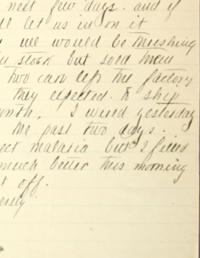 next few days. and if
let us in on it
we would be
stock but
two cars left the factory
They expected to ship
month. I wired yesterday
the past two days.
malaria but I feel
much better this morning
off.